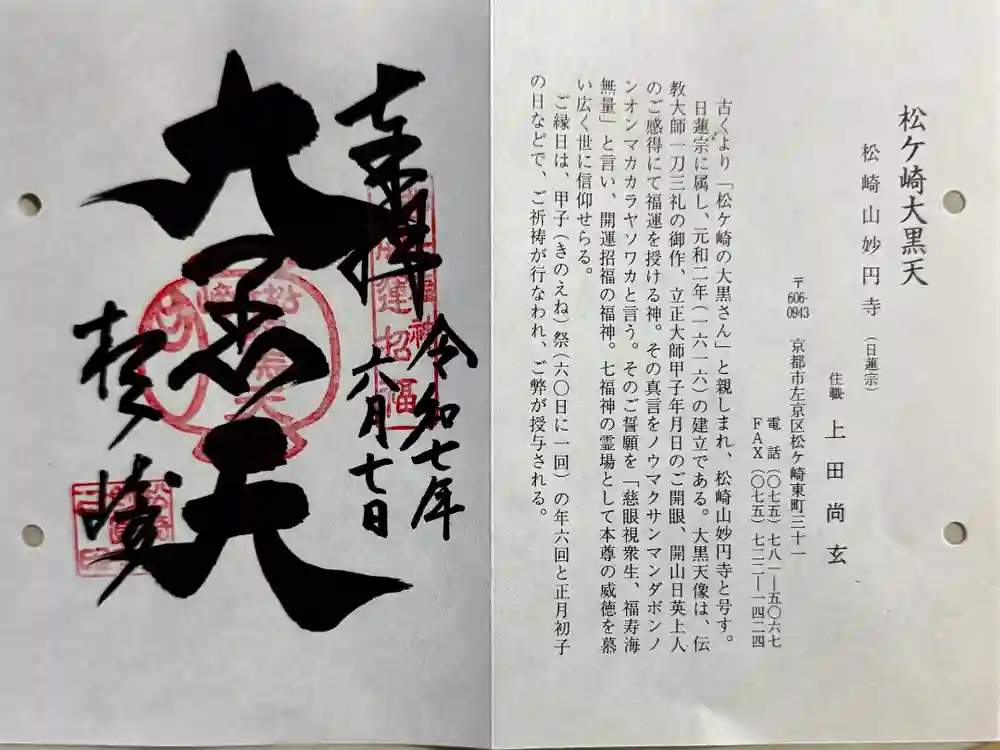 松ケ崎大黒天
松崎山妙円寺（日蓮宗）
住職　上田尚玄
〒606-0943　京都市左京区松ケ崎東町三十一
電話（〇七五）七八一―五〇六七
FAX（〇七五）七二二―一四二四
古くより「松ケ崎の大黒さん」と親しまれ、松崎山妙円寺と号す。
日蓮宗に属し、元和二年（一六一六）の建立である。大黒天像は、伝
教大師一刀三礼の御作、立正大師甲子年月日のご開眼、開山日英上人
のご感得にて福運を授ける神。その真言をノウマクサンマンダボンノ
ンオンマカカラヤソワカと言う。そのご誓願を「慈眼視衆生、福寿海
無量」と言い、開運招福の福神。七福神の霊場として本尊の威徳を慕
い広く世に信仰せらる。
ご縁日は、甲子（きのえね）祭（六〇日に一回）の年六回と正月初子
の日などで、ご祈祷が行なわれ、ご弊が授与される。
奉拝
令和七年
六月七日
大黒天
松ヶ崎
開運招福